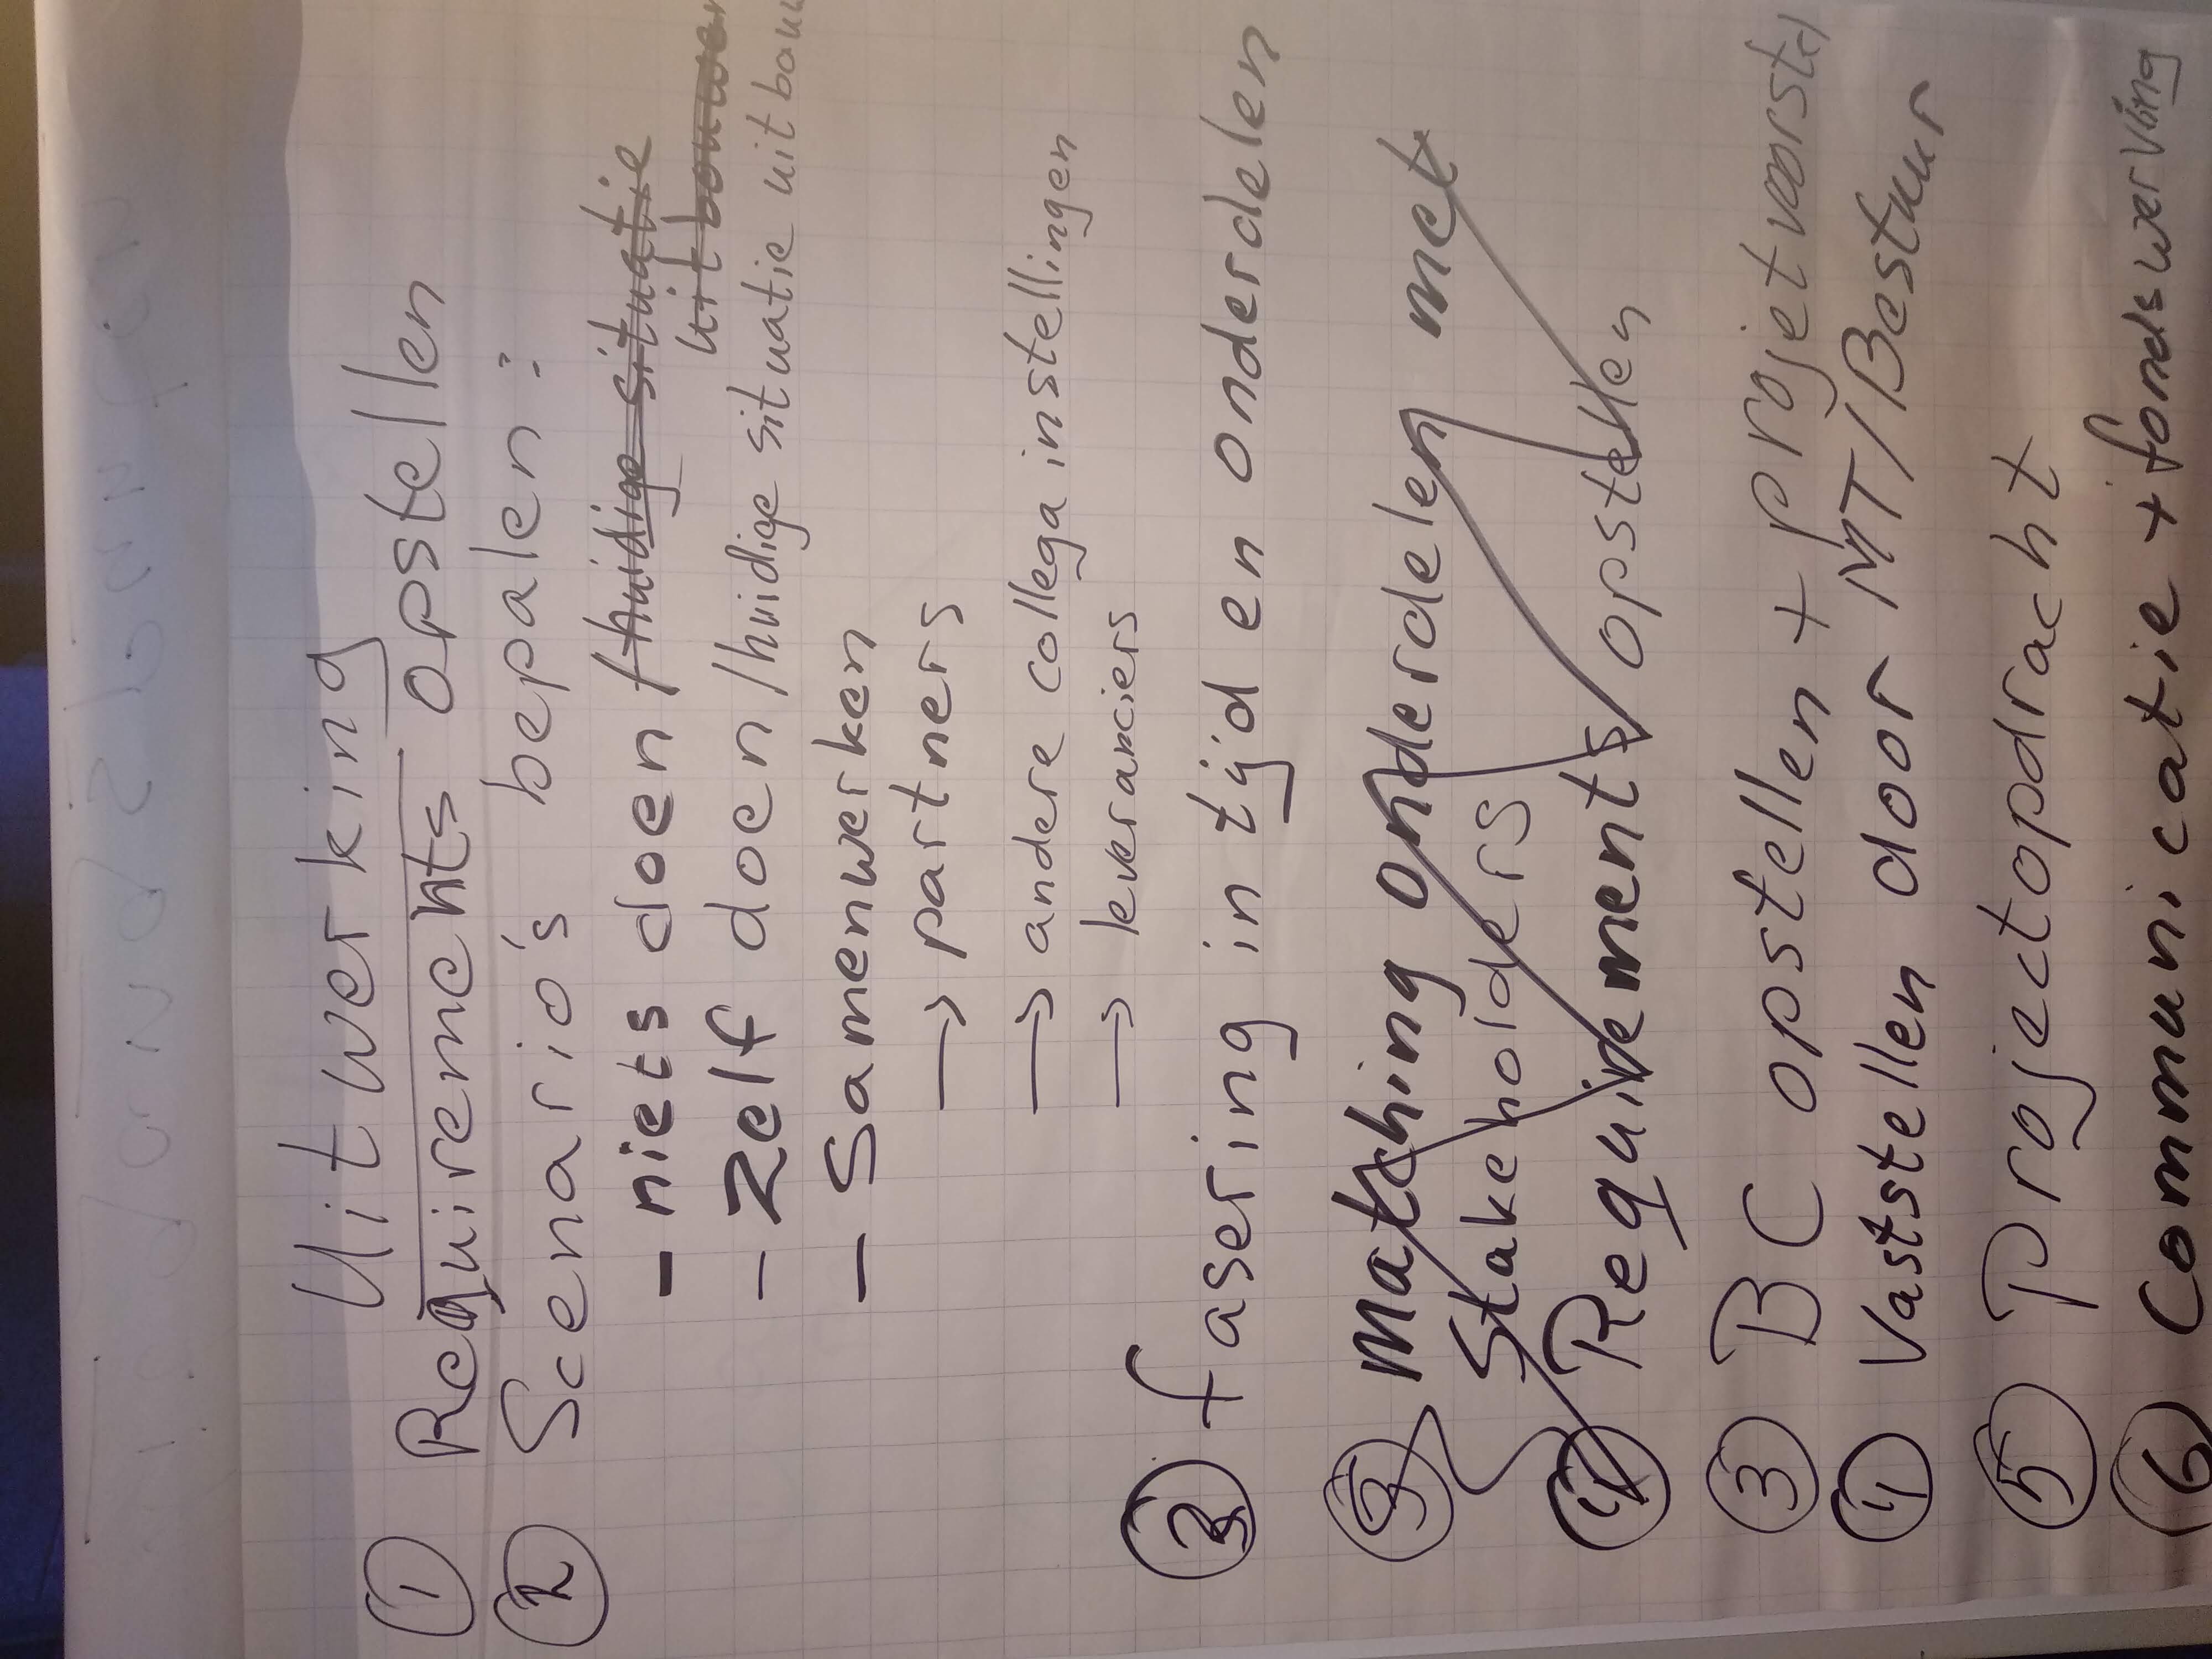 Uitwerking
① Requirements opstellen
② Scenario's bepalen:
- niets doen /huidige situatie
uitbouwen
- Zelf doen /huidige situatie uitbouw
- Samenwerken
→ partners
→ andere collega instellingen
→ leveranciers
fasering in tijd en onderdelen
matching onderdelen met
Stakeholders
④ Requirements opstellen
③ BC opstellen + projetvoorstel
④ Vaststellen door MT/Bestuur
⑤ Projectopdracht
⑥ Communicatie + fondswerving